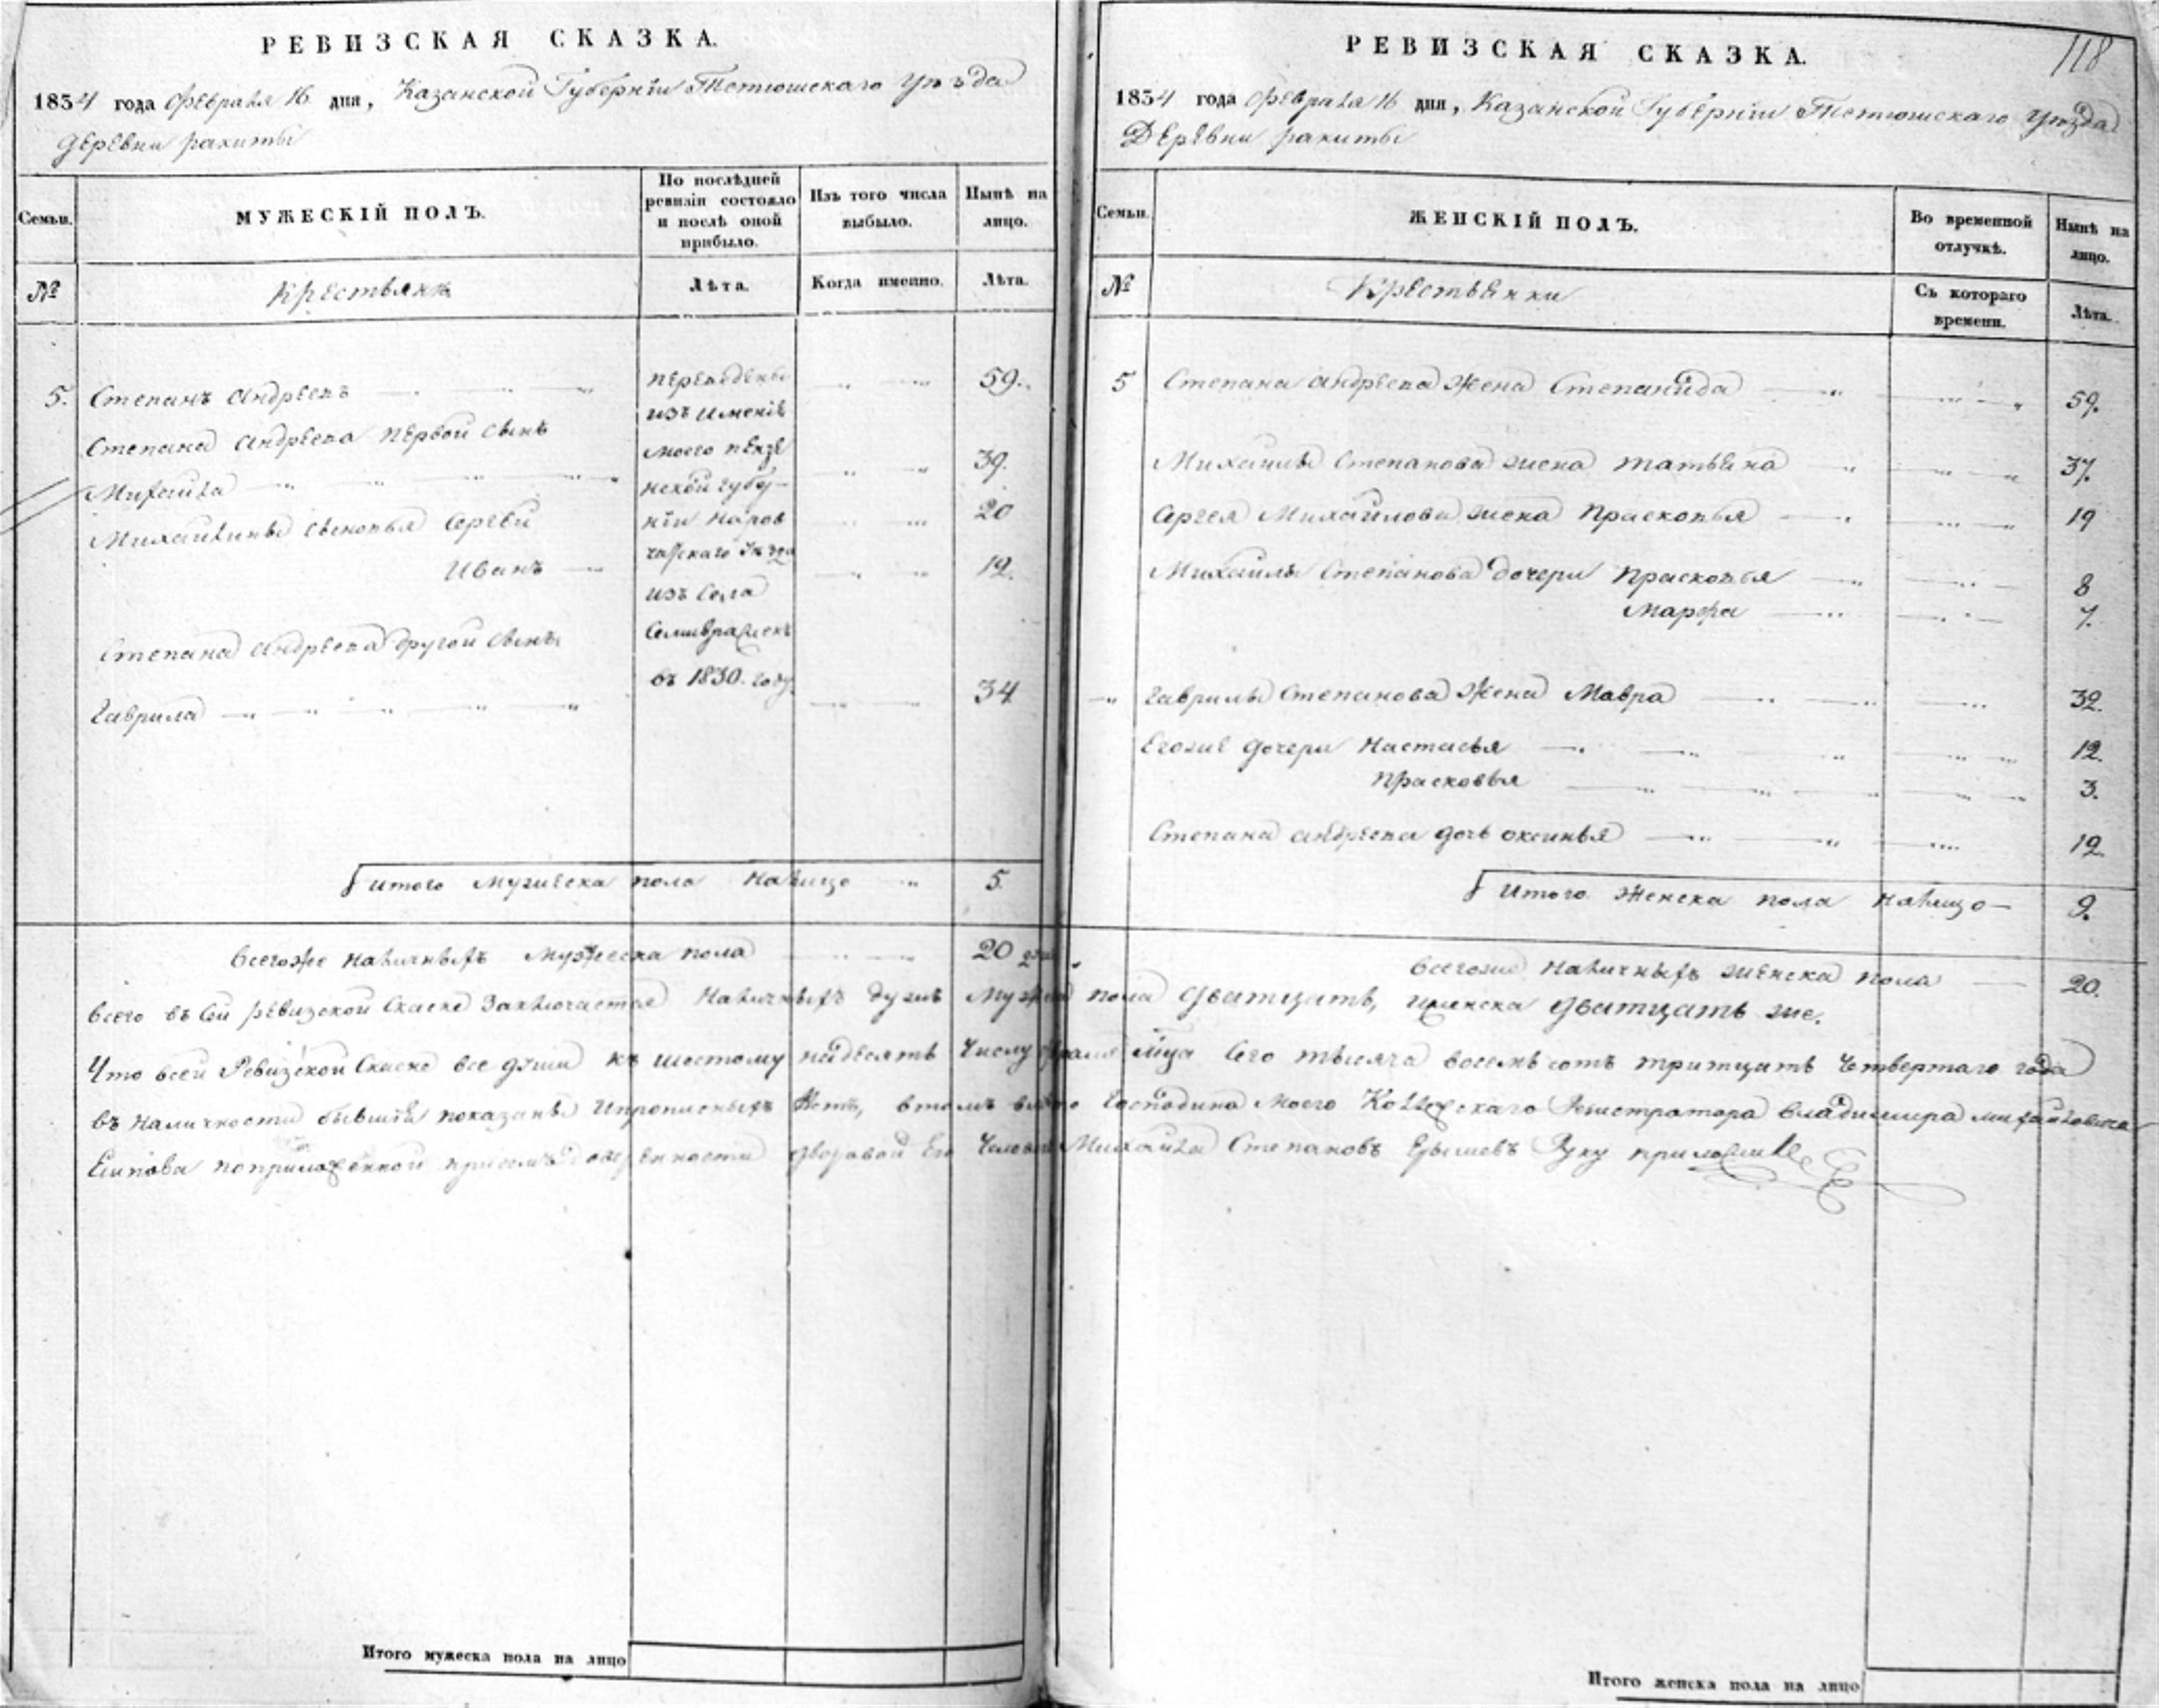 РЕВИЗСКАЯ СКАЗКА.
1834 года февраля 16 дня, Казанской Губернiи Тетюшскаго уѣзда
деревни ракиты
Семьи.
МУЖЕСКIЙ ПОЛЪ.
По послѣдней ревизiи состояло и послѣ оной прибыло.
Изъ того числа выбыло.
Нынѣ на лицо.
№
Крестьяня
Лѣта.
Когда именно.
Лѣта.
5. Степанъ андреевъ 59.
Степана андреева первой сынъ
Михаила 39.
Михаилины сыновья Сергей 20
Иванъ 12.
Степана андреева другой сынъ
Гаврила 34
переведены
изъ имения
моего пензе
нской губер-
нiи Наров
чатскаго уезда
изъ Села
въ 1830. году
итого мужеска пола налицо 5
всегоже наличныхъ мужеска пола 20
РЕВИЗСКАЯ СКАЗКА.
118
1834 года февраля 16 дня, Казанской Губернiи Тетюшскаго уезда
Деревни ракиты
Семьи.
ЖЕНСКIЙ ПОЛЪ.
Во временной отлучкѣ.
Нынѣ на лицо.
№
Крестьянки
Съ котораго времени.
Лѣта.
5 Степана андреева жена Степанида 59.
Михаилы Степанова жена татьяна 37.
Сергея Михайлова жена Прасковья 19
Михаилы Степанова дочери Прасковья 8
Марфа 7.
Гаврилы Степанова жена Мавра 32.
Егоже дочери Настасья 12.
Прасковья 3.
Степана андреева дочь оксинья 12.
Итого женска пола налицо 9.
всегоже наличныхъ женска пола 20.
всего въ сей ревизской Скаске Заключается наличныхъ душъ муж пола дватцать, женска дватцать же.
Что всей Ревизской Скаске все души къ шостому надесять числу мца Сего тысяча восемь сотъ тритцать четвертаго года
въ наличности бывшiя показаны и прописныхъ нетъ, втомъ Господина моего Коллежскаго Регистратора владимира михайловича
Есипова поприложенной присемъ доверенности дворовой Его человекъ Михайла Степановъ руку приложилъ
Итого мужеска пола на лицо
Итого женска пола на лицо